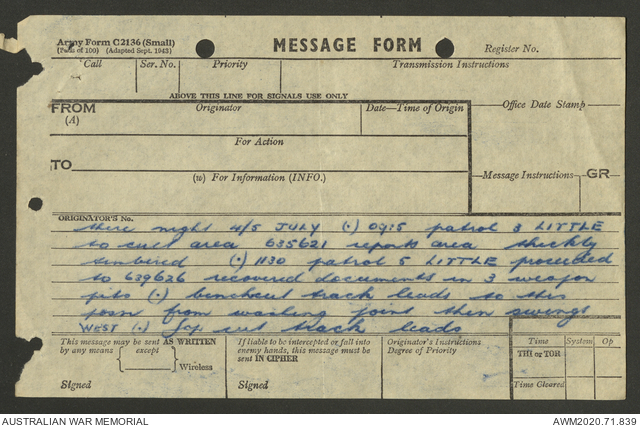 Army Form C2136 (Small)
(Pads of 100) (Adapted Sept. 1943)
MESSAGE FORM
Register No.
Call
Ser. No.
Priority
Transmission Instructions
ABOVE THIS LINE FOR SIGNALS USE ONLY
FROM
(A)
Originator
Date—Time of Origin
Office Date Stamp
For Action
TO
(w) For Information (INFO.)
Message Instructions
GR
ORIGINATOR'S No.
there night 4/5 JULY (.) 0915 patrol 3 LITTLE
to area 635621 reports area thickly
timbered (.) 1130 patrol 5 LITTLE proceeded
to 639626 recovered documents in 3 weapon
pits (.) benchcut track leads to this
posn from washing point then swings
WEST (.) Jap track leads
This message may be sent AS WRITTEN
by any means { except } Wireless
Signed
If liable to be intercepted or fall into
enemy hands, this message must be
sent IN CIPHER
Signed
Originator's Instructions
Degree of Priority
Time
System
Op
THI or TOR
Time Cleared
AUSTRALIAN WAR MEMORIAL
AWM2020.71.839